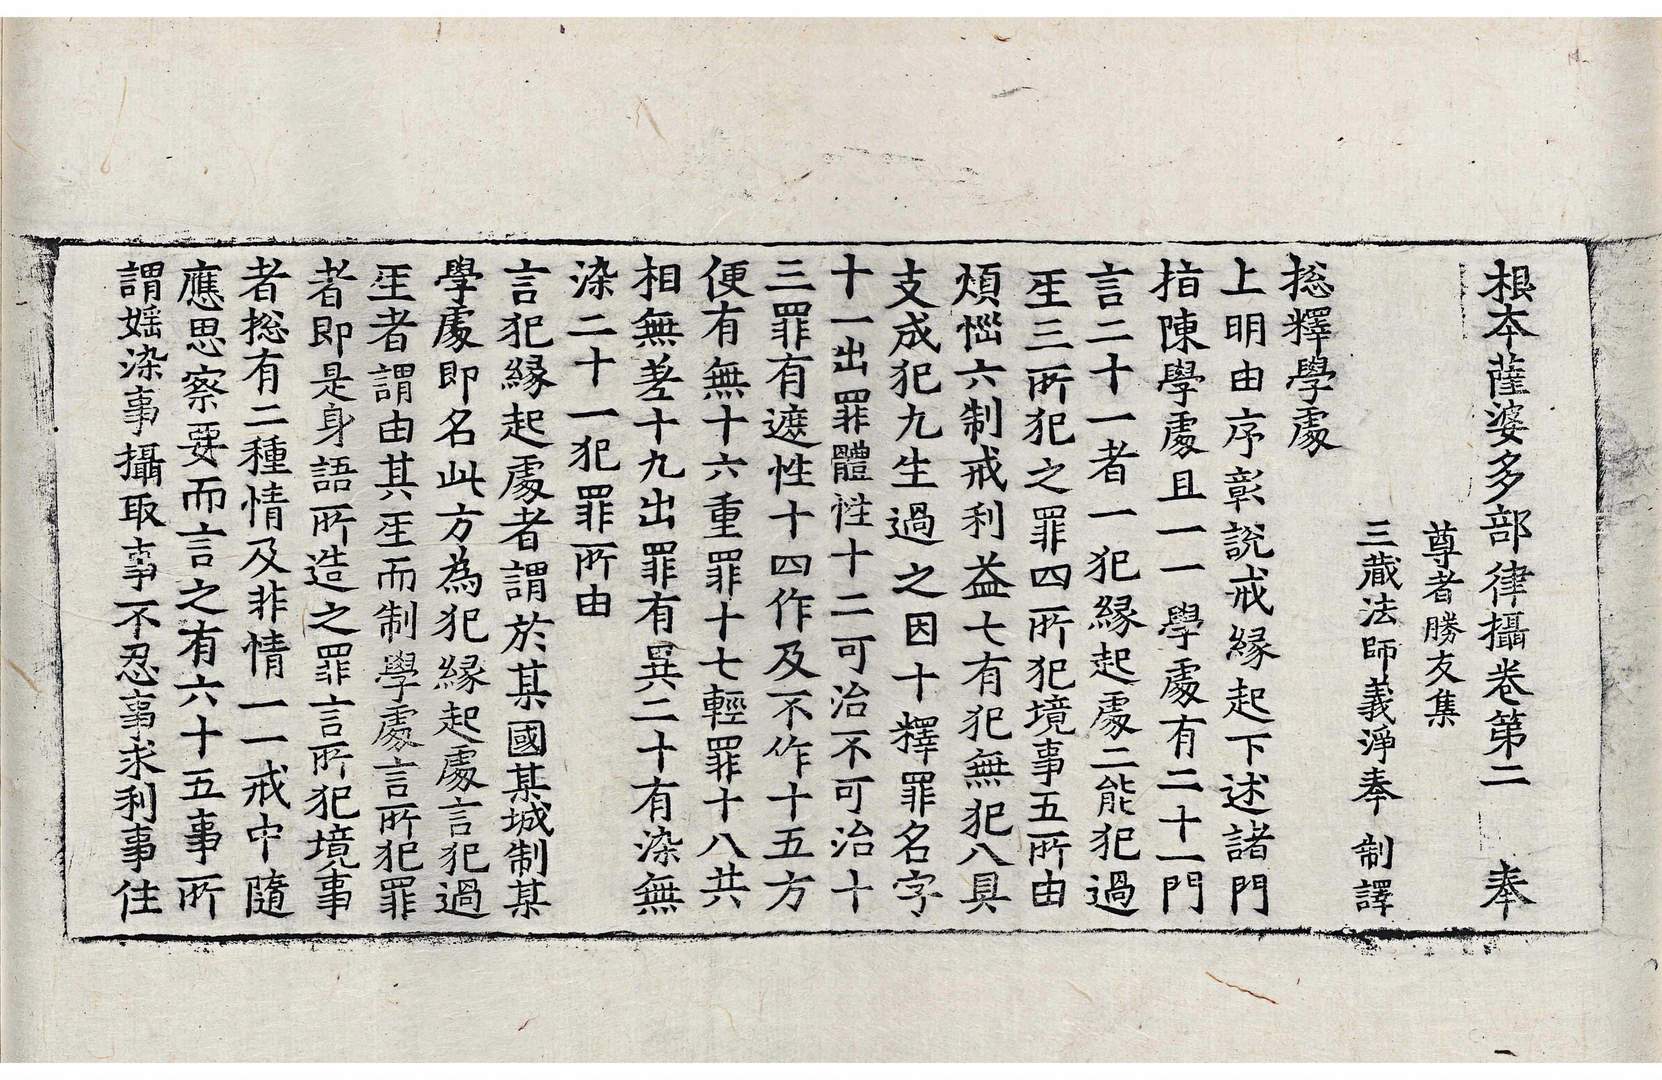 根本薩婆多部律攝卷第二 奉
尊者勝友集
三藏法師義淨奉 制譯
捴釋學處
上明由序彰說戒緣起下述諸門
指陳學處且一一學處有二十一門
言二十一者一犯緣起處二能犯過
𤯔三所犯之罪四所犯境事五所由
煩惱六制戒利益七有犯無犯八具
支成犯九生過之因十釋罪名字
十一出罪體性十二可治不可治十
三罪有遮性十四作及不作十五方
便有無十六重罪十七輕罪十八共
相無差十九出罪有異二十有染無
染二十一犯罪所由
言犯緣起處者謂於某國某城制某
學處即名此方為犯緣起處言犯過
𤯔者謂由其𤯔而制學處言所犯罪
者即是身語所造之罪言所犯境事
者捴有二種情及非情一一戒中隨
應思察要而言之有六十五事所
謂婬染事攝取事不忍事求利事住